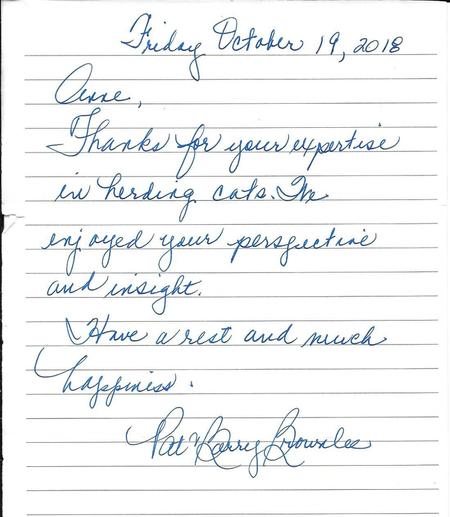 Friday October 19, 2018
Anne,
Thanks for your expertise
in herding cats. We
enjoyed your perspective
and insight.
Have a rest and much
happiness.
Pat & Barry